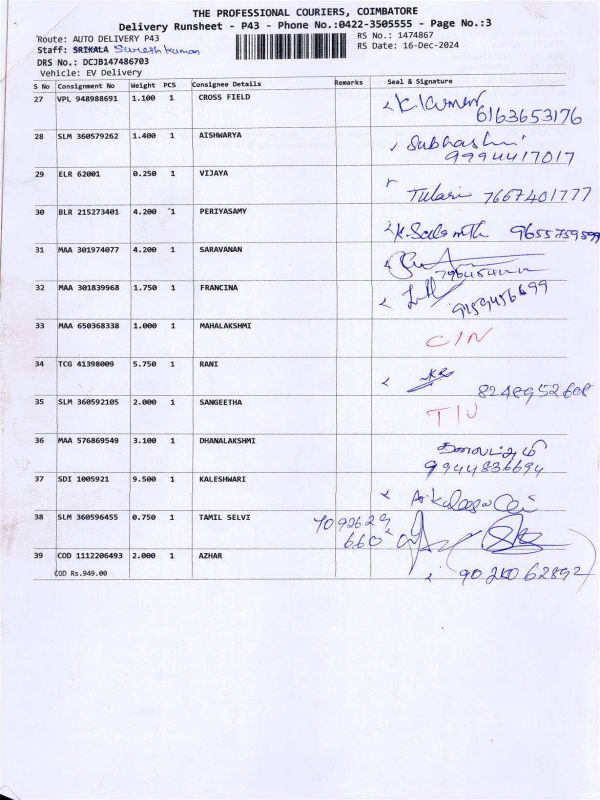 THE PROFESSIONAL COURIERS, COIMBATORE
Delivery Runsheet - P43 - Phone No.:0422-3505555 - Page No.:3
Route: AUTO DELIVERY P43
RS No.: 1474867
Staff: SRIKALA Sureshkumar
RS Date: 16-Dec-2024
DRS No.: DCJB147486703
Vehicle: EV Delivery
S No Consignment No Weight PCS Consignee Details Remarks Seal & Signature
27 VPL 948988691 1.100 1 CROSS FIELD K.Kumar
6163653176
28 SLM 360579262 1.400 1 AISHWARYA Subhashni
9994417017
29 ELR 62001 0.250 1 VIJAYA
Tulasi 7667401777
30 BLR 215273401 4.200 1 PERIYASAMY 9655759599
31 MAA 301974077 4.200 1 SARAVANAN
32 MAA 301839968 1.750 1 FRANCINA
9159456699
33 MAA 650368338 1.000 1 MAHALAKSHMI
C/N
34 TCG 41398009 5.750 1 RANI
8248952608
35 SLM 360592105 2.000 1 SANGEETHA
36 MAA 576869549 3.100 1 DHANALAKSHMI
9944836694
37 SDI 1005921 9.500 1 KALESHWARI
38 SLM 360596455 0.750 1 TAMIL SELVI 7092629
660
39 COD 1112206493 2.000 1 AZHAR
COD Rs.949.00